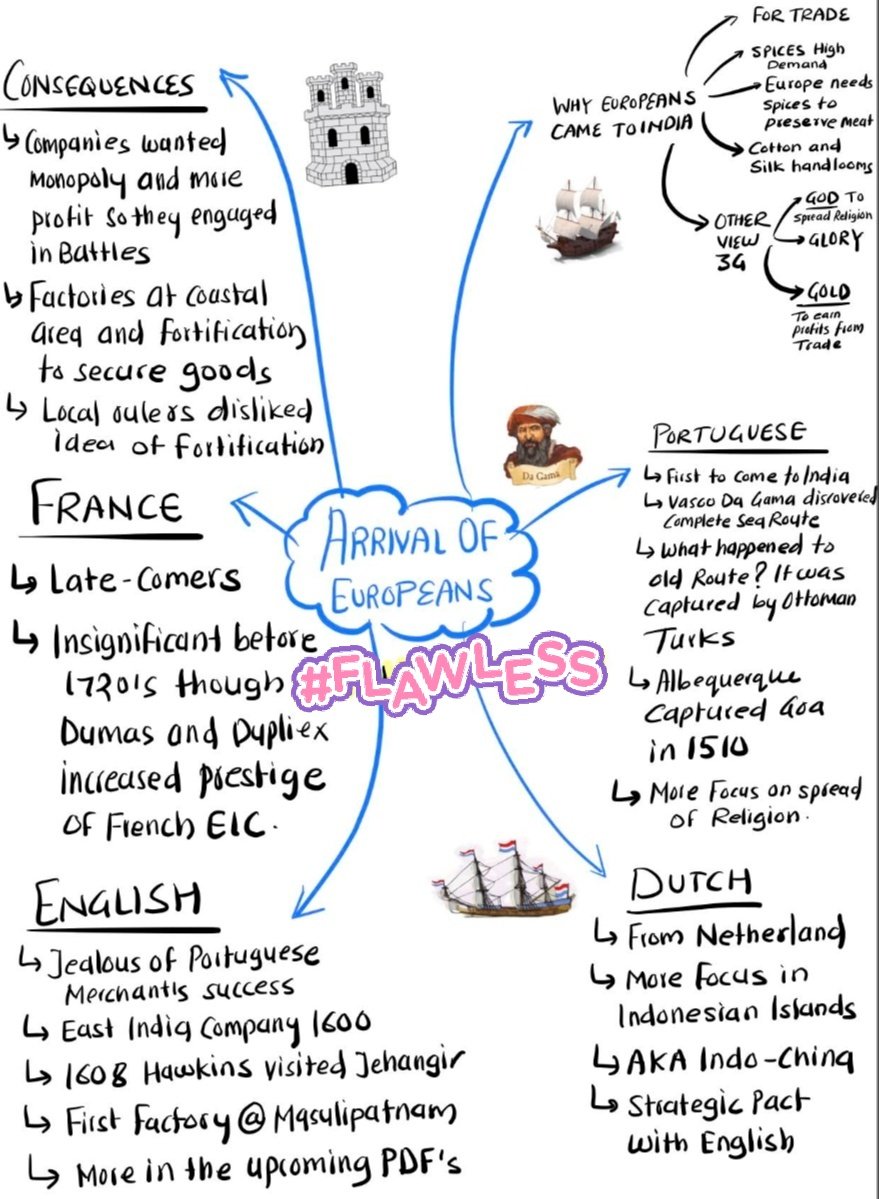 ARRIVAL OF
EUROPEANS
#FLAWLESS
WHY EUROPEANS
CAME TO INDIA
FOR TRADE
SPICES High
Demand
Europe needs
Spices to
Preserve Meat
Cotton and
Silk handlooms
OTHER
VIEW
3G
GOD TO
Spread Religion
GLORY
GOLD
To earn
profits from
Trade
Da Gama
PORTUGUESE
First to come to India
Vasco Da Gama discovered
Complete Sea Route
What happened to
old Route? It was
Captured by Ottoman
Turks
Albequerque
Captured Goa
in 1510
More Focus on spread
of Religion.
DUTCH
From Netherland
More Focus in
Indonesian Islands
AKA Indo-China
Strategic Pact
with English
ENGLISH
Jealous of Portuguese
Merchants success
East India Company 1600
1608 Hawkins visited Jehangir
First Factory @ Masulipatnam
More in the upcoming PDF's
FRANCE
Late-Comers
Insignificant before
1720's though
Dumas and Dupliex
increased prestige
of French EIC.
CONSEQUENCES
Companies wanted
Monopoly and more
profit so they engaged
in Battles
Factories at coastal
area and fortification
to secure goods
Local rulers disliked
idea of fortification